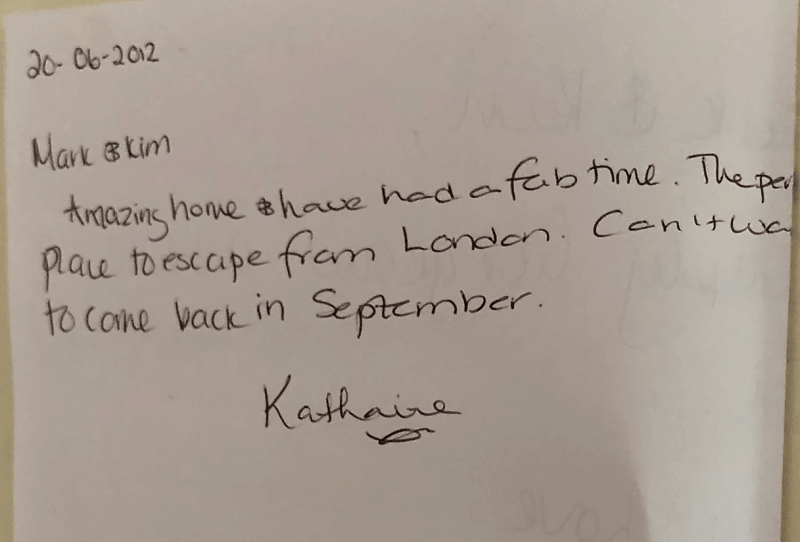 20-06-2012
Mark & Kim
Amazing home & have had a fab time. The per
place to escape from London. Can't wa
to come back in September.
Kathaine